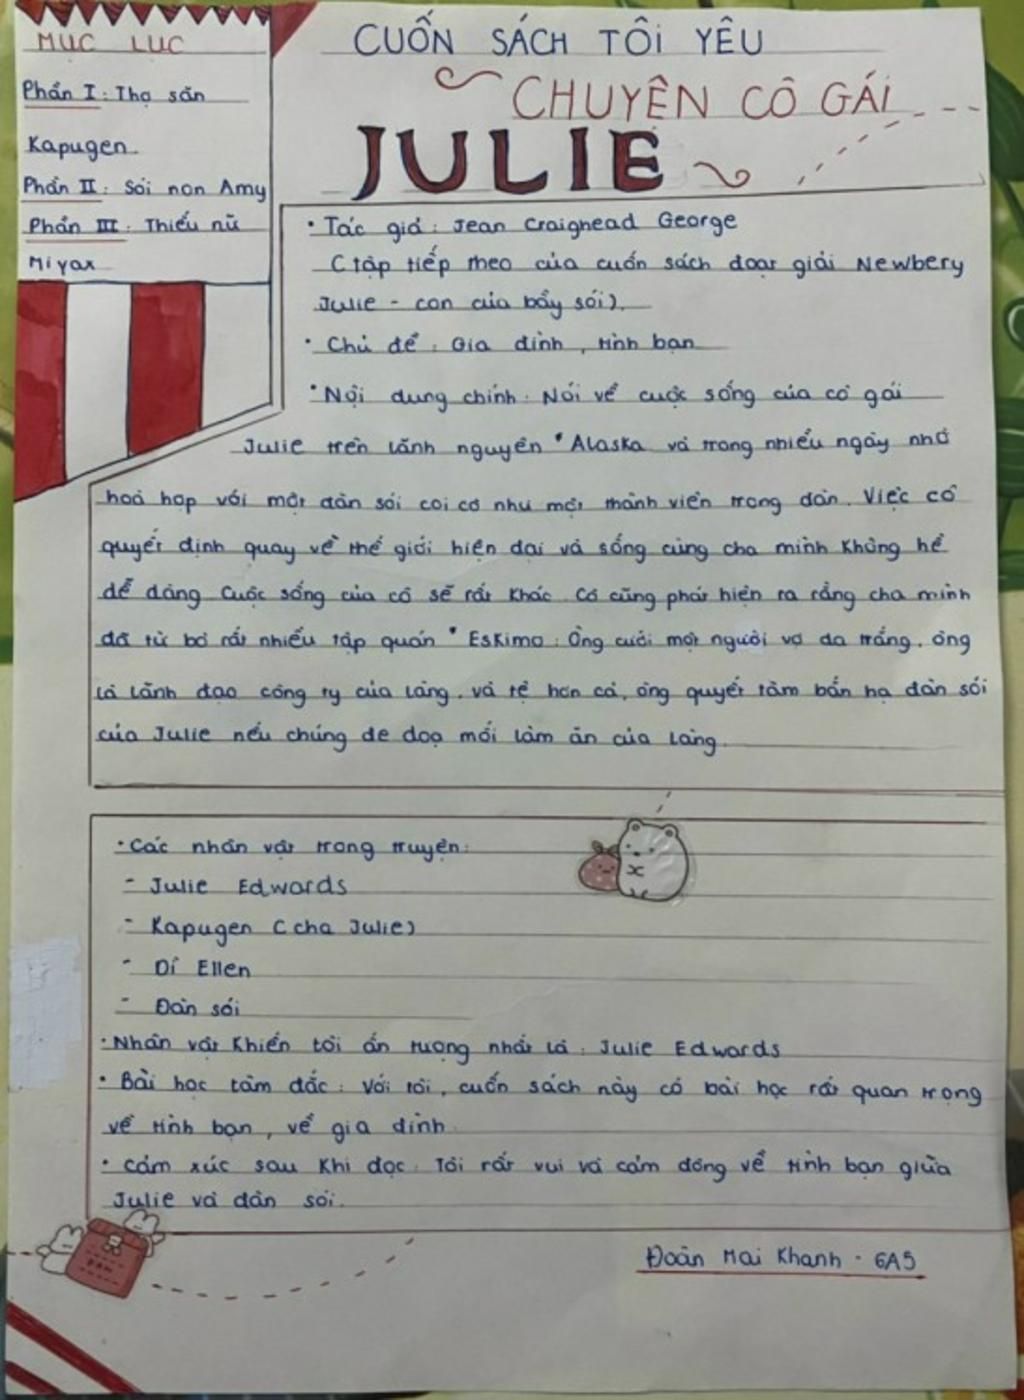 MỤC LỤC
Phần I: Thợ săn
Kapugen
Phần II: Sói non Amy
Phần III: Thiếu nữ
Miyax
CUỐN SÁCH TÔI YÊU
CHUYỆN CÔ GÁI
JULIE
• Tác giả: Jean Craighead George
(tập tiếp theo của cuốn sách đoạt giải Newbery
Julie - con của bầy sói).
• Chủ đề: Gia đình, tình bạn
• Nội dung chính: Nói về cuộc sống của cô gái
Julie trên lãnh nguyên "Alaska và trong nhiều ngày nhờ
hoà hợp với một đàn sói coi cô như một thành viên trong đàn. Việc cô
quyết định quay về thế giới hiện đại và sống cùng cha mình không hề
dễ dàng. Cuộc sống của cô sẽ rất khác. Cô cũng phát hiện ra rằng cha mình
đã từ bỏ rất nhiều tập quán "Eskimo: Ông cưới một người vợ da trắng, ông
là lãnh đạo công ty của làng, và tệ hơn cả, ông quyết tâm bắn hạ đàn sói
của Julie nếu chúng đe doạ mối làm ăn của làng.
• Các nhân vật trong truyện:
- Julie Edwards
- Kapugen (cha Julie)
- Dì Ellen
- Đàn sói
• Nhân vật khiến tôi ấn tượng nhất là: Julie Edwards
• Bài học tâm đắc: Với tôi, cuốn sách này có bài học rất quan trọng
về tình bạn, về gia đình.
• Cảm xúc sau khi đọc: Tôi rất vui và cảm động về tình bạn giữa
Julie và đàn sói.
Đoàn Mai Khanh - 6A5